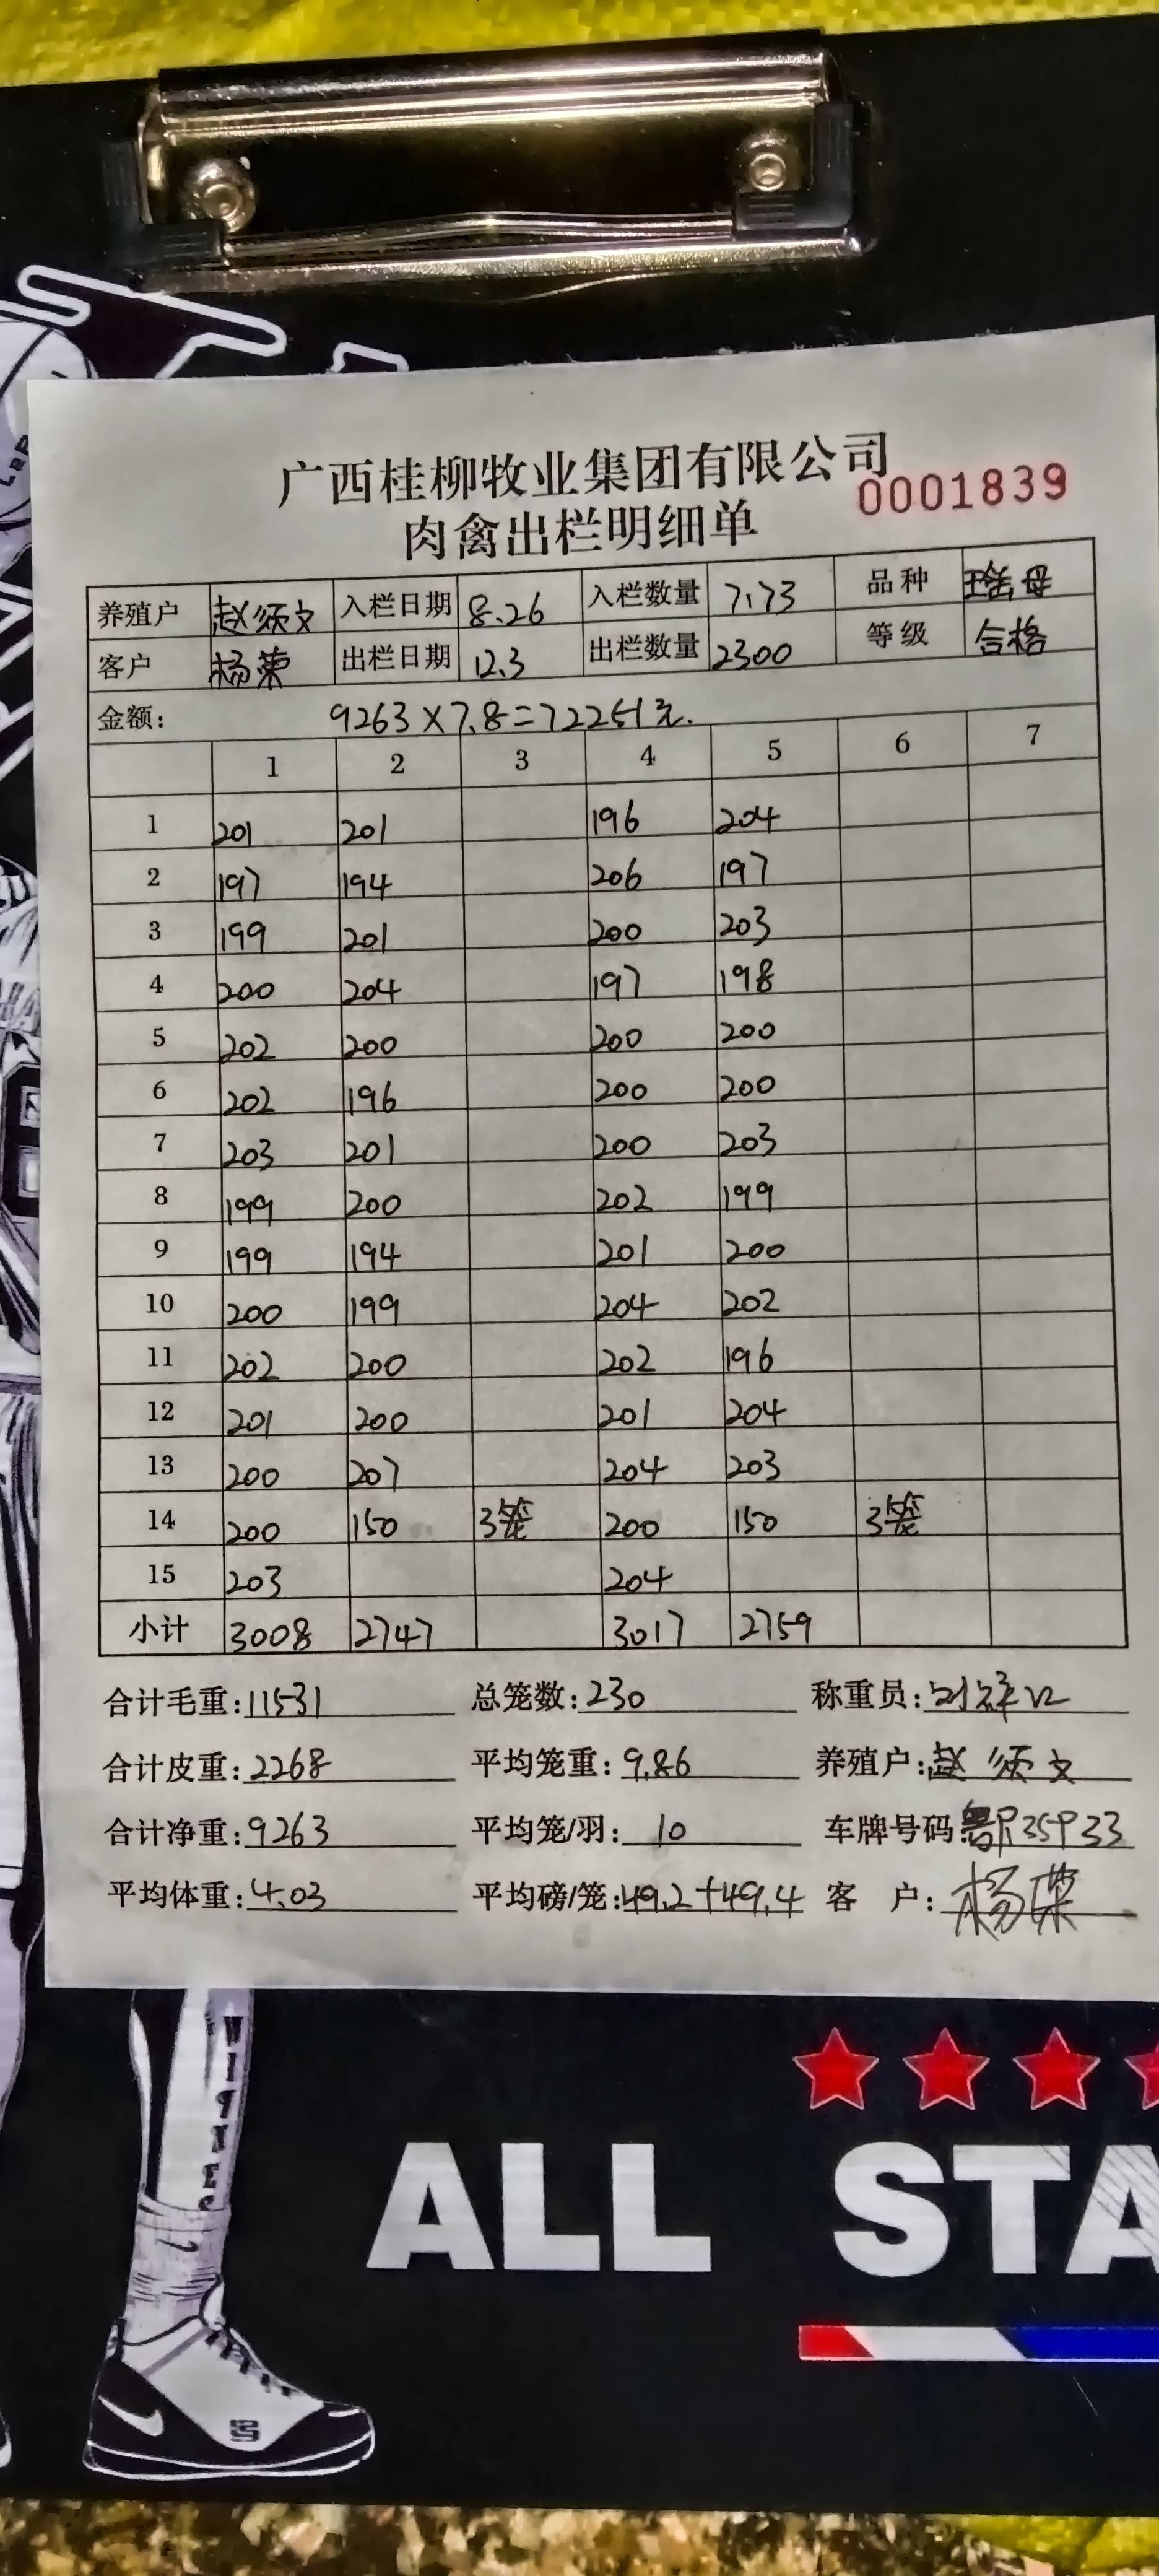 广西桂柳牧业集团有限公司
0001839
肉禽出栏明细单
养殖户 赵须文 入栏日期 8.26 入栏数量 7.73 品种 瑶母
客户 杨荣 出栏日期 12.3 出栏数量 2300 等级 合格
金额: 9263×7.8=72251元.
1 2 3 4 5 6 7
1 201 201 196 204
2 197 194 206 197
3 199 201 200 203
4 200 204 197 198
5 202 200 200 200
6 202 196 200 200
7 203 201 200 203
8 199 200 202 199
9 199 194 201 200
10 200 199 204 202
11 202 200 202 196
12 201 200 201 204
13 200 207 204 203
14 200 150 3笼 200 150 3笼
15 203 204
小计 3008 2747 3017 2759
合计毛重:11531 总笼数:230 称重员:
合计皮重:2268 平均笼重:9.86 养殖户:赵须文
合计净重:9263 平均笼/羽:10 车牌号码
平均体重:4.03 平均磅/笼:49.2+49.4 客 户:杨荣
ALL STA